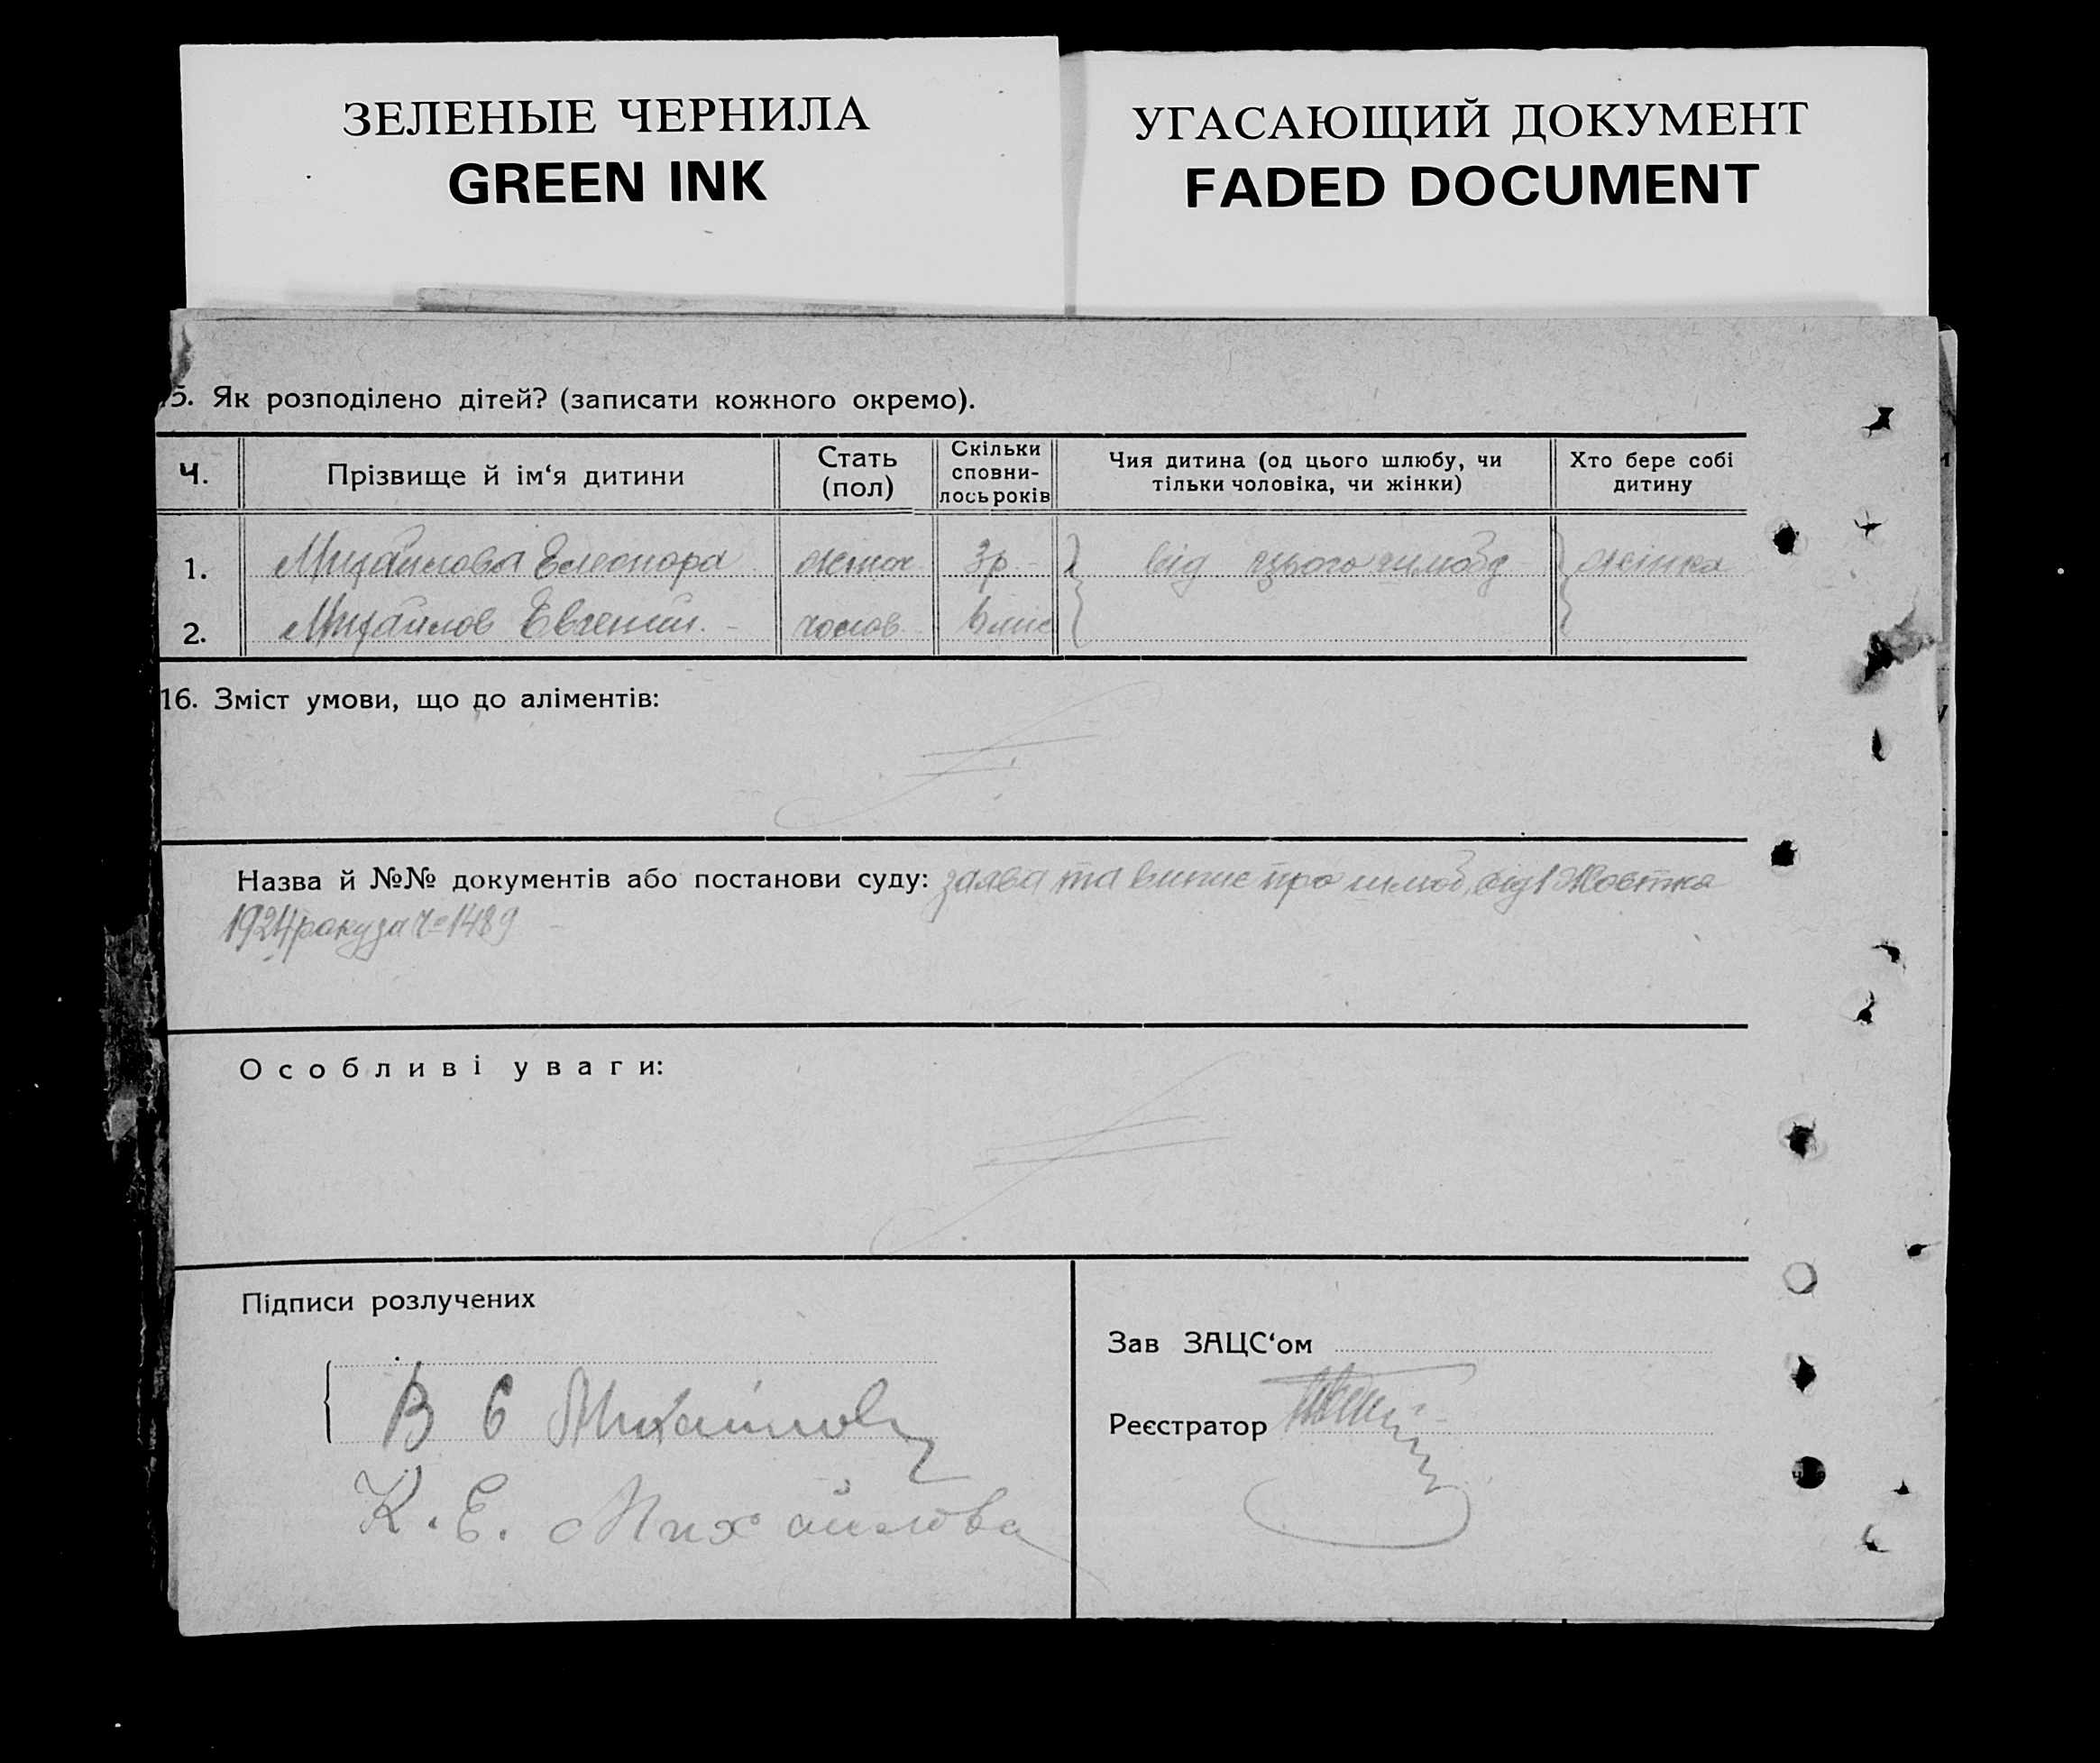 ЗЕЛЕНЫЕ ЧЕРНИЛА
GREEN INK
УГАСАЮЩИЙ ДОКУМЕНТ
FADED DOCUMENT
15. Як розподілено дітей? (записати кожного окремо).
Ч. Прізвище й ім‘я дитини Стать (пол) Скільки сповни-лось років Чия дитина (од цього шлюбу, чи тільки чоловіка, чи жінки) Хто бере собі дитину
1. Михайлова Елеонора жіноч 3 р. від цього шлюбу жінка
2. Михайлов Евгений чолов
16. Зміст умови, що до аліментів:
Назва й №№ документів або постанови суду: заява та випис про шлюб, від 1 Жовтня
1924 року за ч 1489
Особливі уваги:
Підписи розлучених
В Е Михайлов
К. Е. Михайлова
Зав ЗАЦС‘ом
Реєстратор